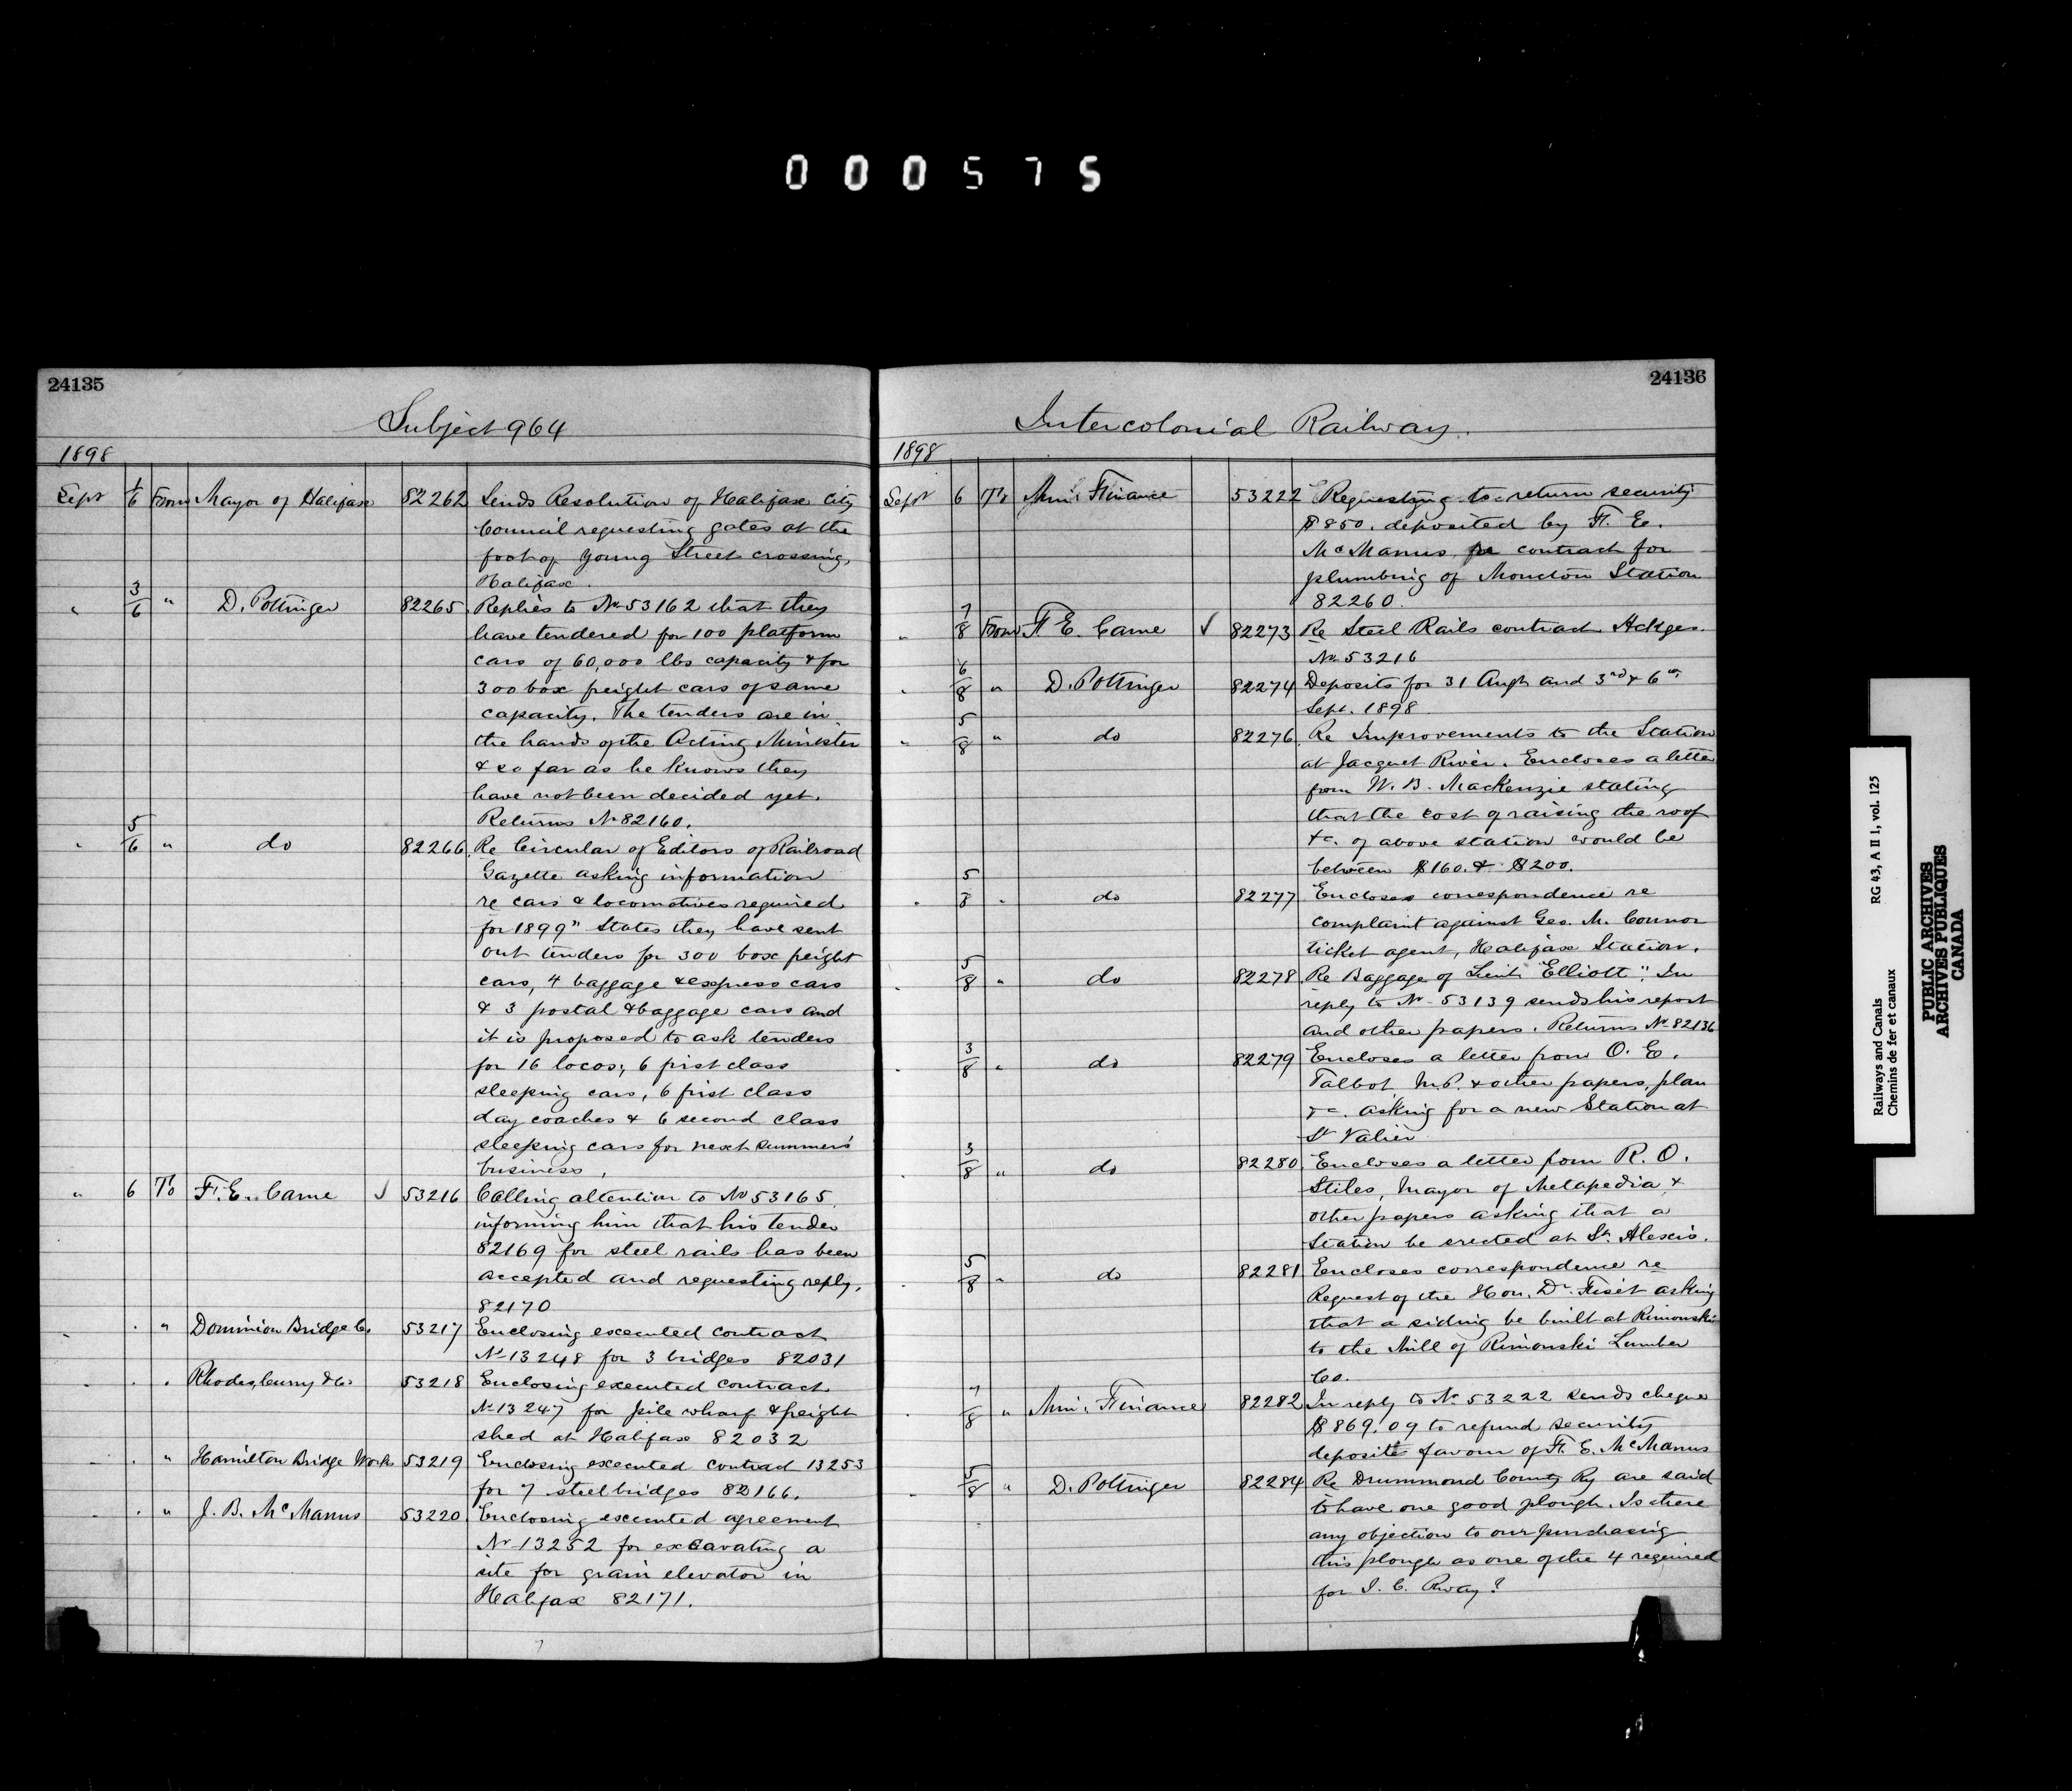 000575
24135
Subject 964
1898
Sept 1/6 From Mayor of Halifax 82262 Sends Resolution of Halifax City
Council requesting gates at the
foot of Young Street crossing,
Halifax.
" 3/6 " D. Pottinger 82265 Replies to No 53162 that they
have tendered for 100 platform
cars of 60,000 lbs capacity & for
300 box freight cars of same
capacity. The tenders are in
the hands of the Acting Minister
& so far as he knows they
have not been decided yet.
Returns No 82160.
" 5/6 " do 82266 Re Circular of Editors of Railroad
Gazette asking information
re cars & locomotives required
for 1899" States they have sent
out tenders for 300 box freight
cars, 4 baggage & express cars
& 3 postal & baggage cars and
it is proposed to ask tenders
for 16 locos; 6 first class
sleeping cars, 6 first class
day coaches & 6 second class
sleeping cars for next summers'
business,
" 6 To F. E. Came ✓ 53216 Calling attention to No 53165
informing him that his tender
82169 for steel rails has been
accepted and requesting reply.
82170
" " " Dominion Bridge Co. 53217 Enclosing executed contract
No 13248 for 3 bridges 82031
" " " Rhodes, Curry & Co 53218 Enclosing executed contract
No 13247 for pile wharf & freight
shed at Halifax 82032
" " " Hamilton Bridge Works 53219 Enclosing executed contract 13253
for 7 steel bridges 82166.
" " " J. B. McManus 53220 Enclosing executed agreement
No 13252 for excavating a
site for grain elevator in
Halifax 82171.
24136
Intercolonial Railway.
1898
Sept 6 To Min. Finance 53222 Requesting to return security
$850. deposited by F. E.
McManus, re contract for
plumbing of Moncton Station
82260.
" 7/8 From F. E. Came ✓ 82273 Re Steel Rails contract Ackges.
No 53216
" 6/8 " D. Pottinger 82274 Deposits for 31 Augt and 3rd & 6th
Sept. 1898
" 5/8 " do 82276 Re Improvements to the Station
at Jacquet River. Encloses a letter
from W. B. MacKenzie stating
that the cost of raising the roof
&c. of above station would be
between $160. & $200.
" 5/8 " do 82277 Encloses correspondence re
complaint against Geo. M. Connor
ticket agent, Halifax Station.
" 5/8 " do 82278 Re Baggage of Lieut. "Elliott". In
reply to No 53139 sends his report
and other papers. Returns No 82136
" 3/8 " do 82279 Encloses a letter from O. E.
Talbot M.P. & other papers, plan
&c. asking for a new Station at
St Valier
" 3/8 " do 82280 Encloses a letter from R. O.
Stiles, Mayor of Metapedia &
other papers asking that a
Station be erected at St. Alexis.
" 5/8 " do 82281 Encloses correspondence re
Request of the Hon. Dr. Fiset asking
that a siding be built at Rimouski
to the Mill of Rimouski Lumber
Co.
" 7/8 " Min. Finance 82282 In reply to No 53222 sends cheque
$869.09 to refund security
deposit favour of F. E. McManus
" 5/8 " D. Pottinger 82284 Re Drummond County Ry are said
to have one good plough. Is there
any objection to our purchasing
this plough as one of the 4 required
for I. C. Rway?
RG 43, A II 1, vol. 125
Railways and Canals
Chemins de fer et canaux
PUBLIC ARCHIVES
ARCHIVES PUBLIQUES
CANADA